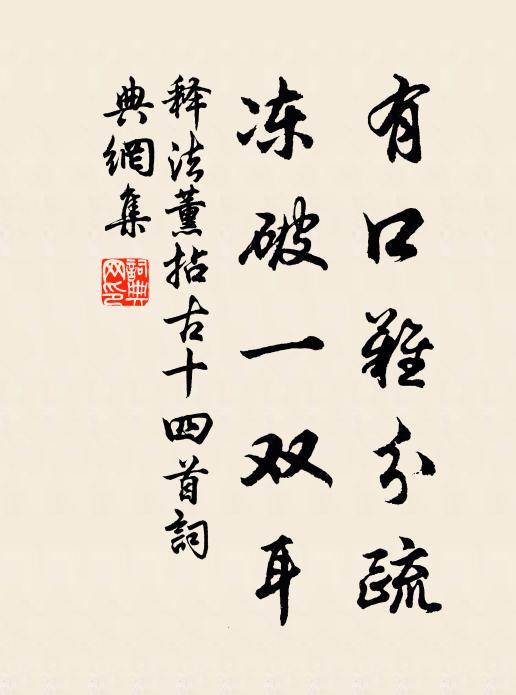 有口難分疏
冻破一双耳
释法薰拈古十四首詞
典網集
詞典网印